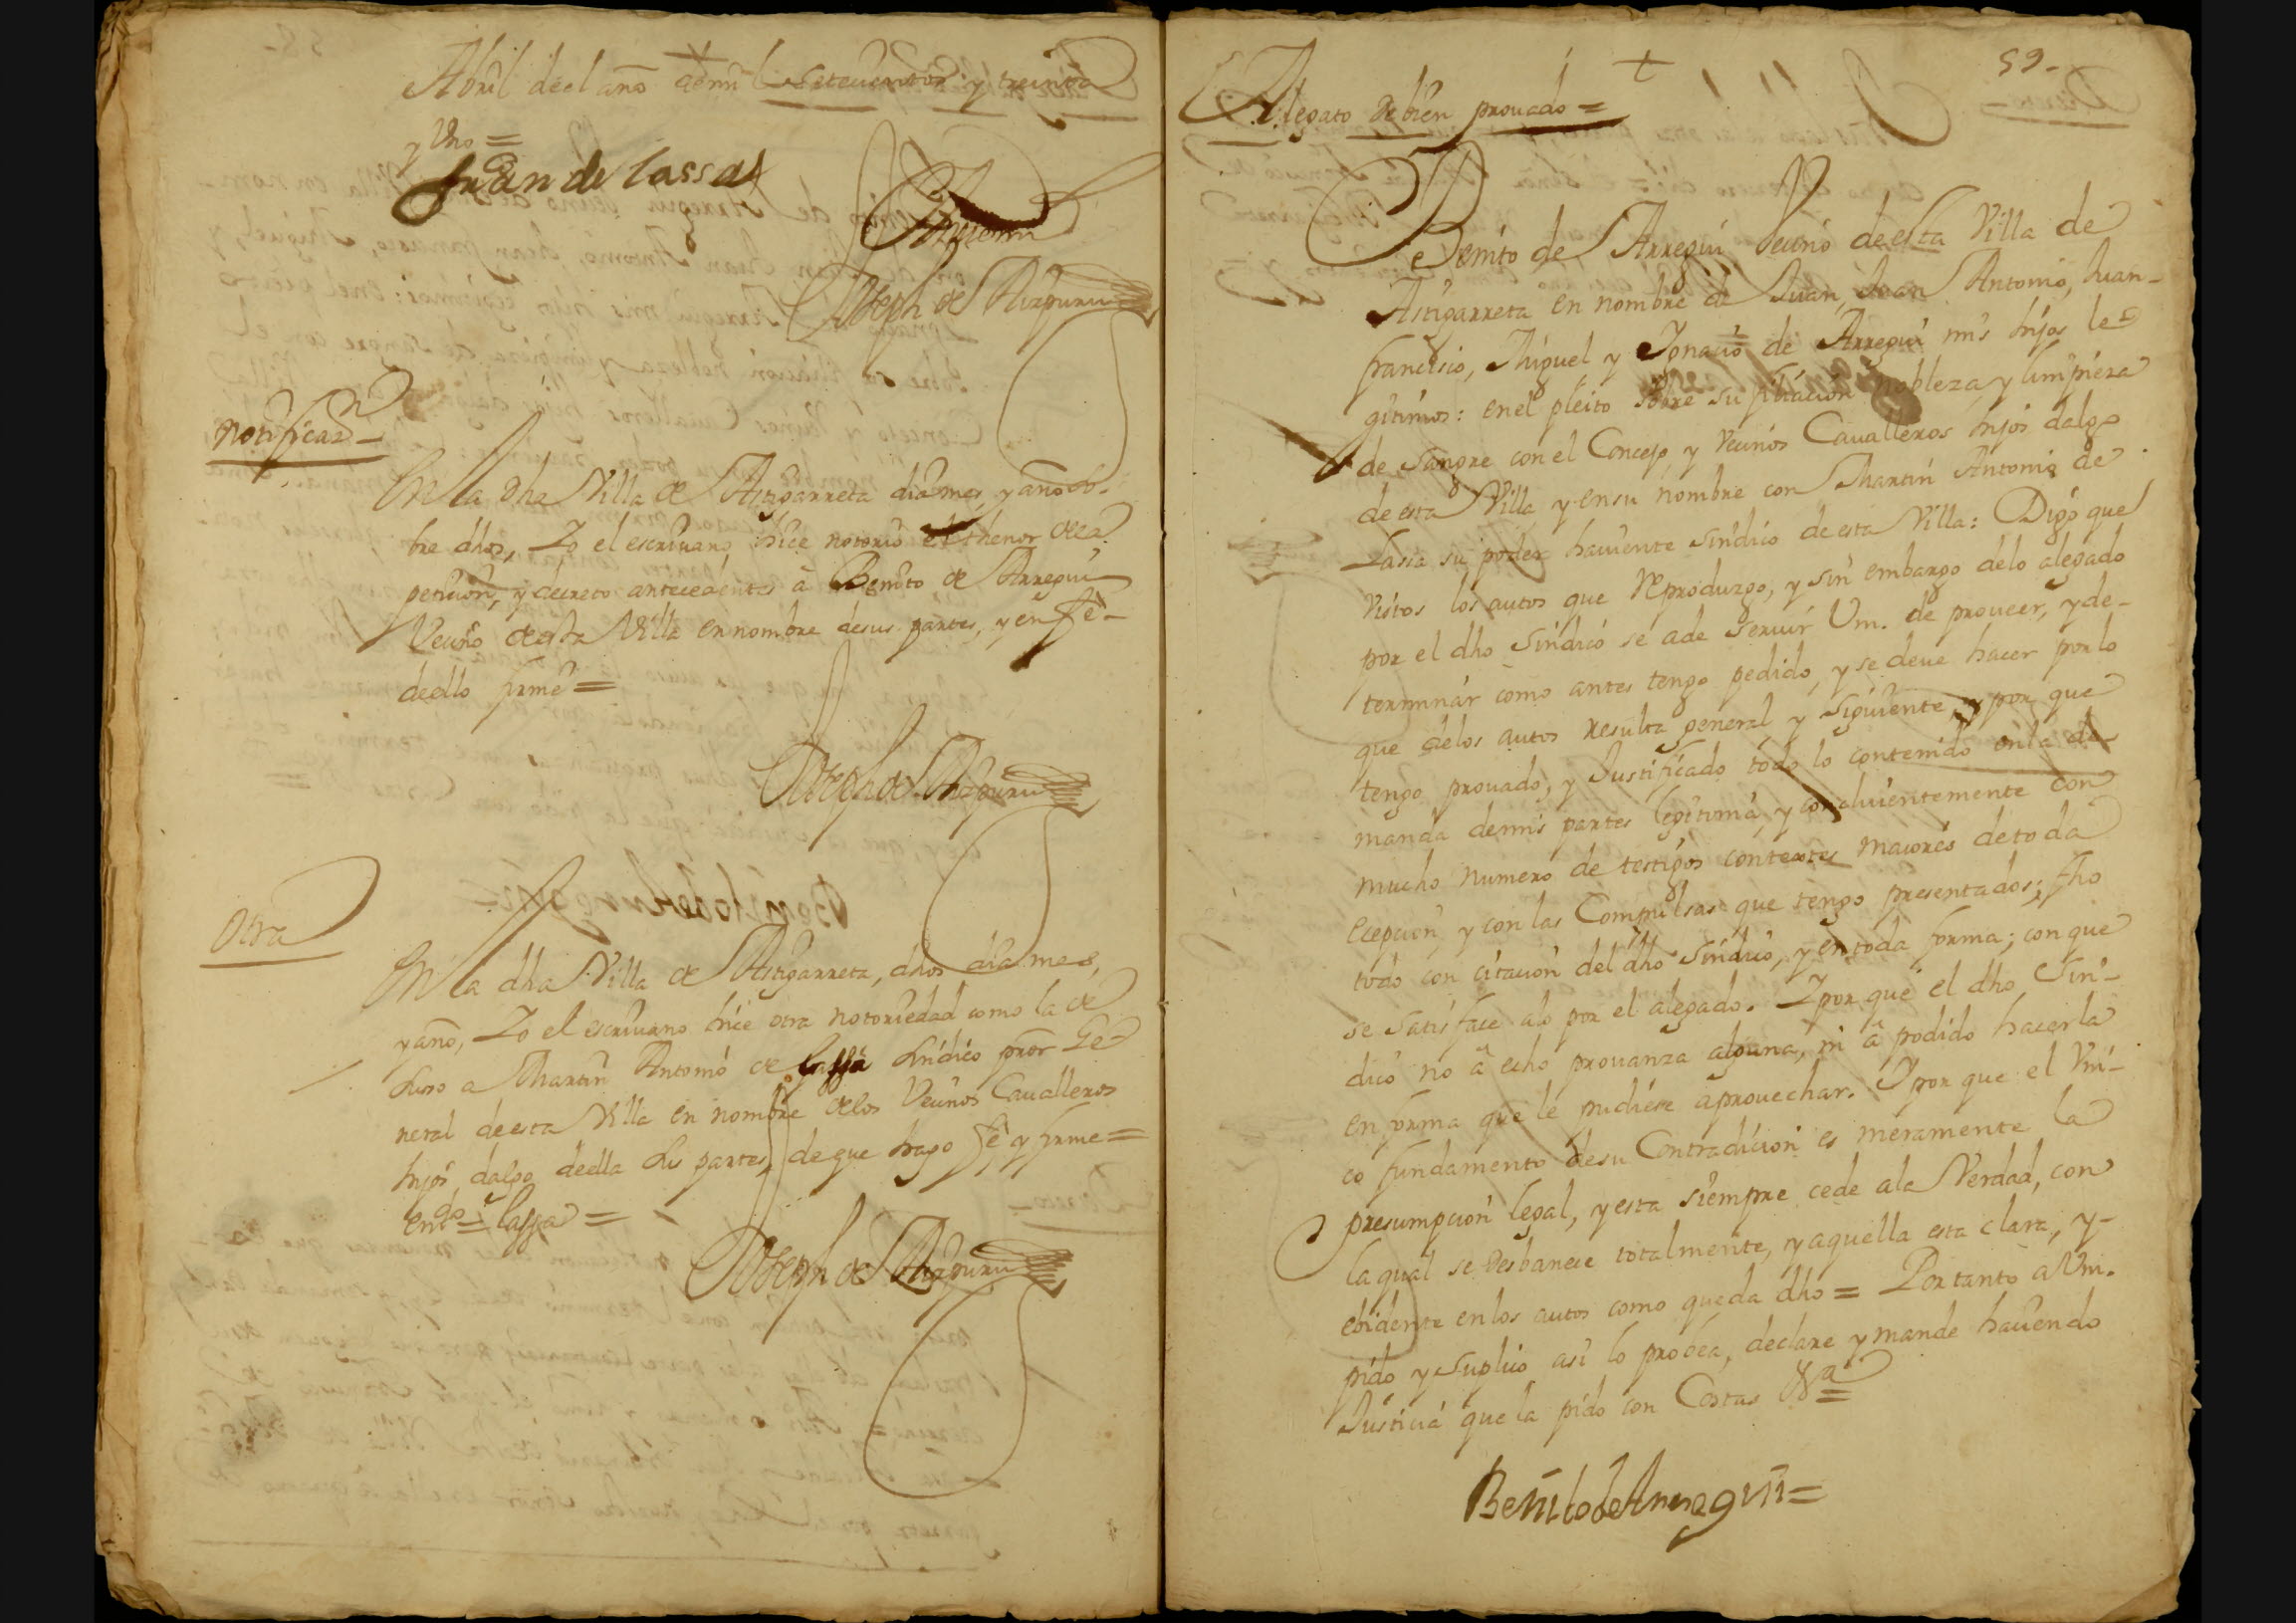 Abril deel año de mil Setecientos y treinta
y Uno =
Juan de lassa
Ante mi
Joseph de Aizpuru
notificaz.on
En la dha Villa de Astigarreta dia mes, y año so-
bre dhos, Yo el escrivano hice notorio el thenor dela
peticion, y decreto antecedentes â Benito de Arregui
Vecino desta Villa en nombre desus partes, y en feê
deello firmê =
Joseph de Aizpuru
Otra
En la dha Villa de Astigarreta, dhos dia mes,
y año, Yo el escrivano hice otra notoriedad como la de
suso a Martin Antonio de lassa Sindico pror Ge-
neral deesta Villa en nombre delos Vecinos Cavalleros
hijos dalgo deella sus partes, de que hago feê y firme =
en.do = lassa =
Joseph de Aizpuru
59.
Alegato de bien provado =
Benito de Arregui vecino deesta Villa de
Astigarreta en nombre de Juan, Juan Antonio, Juan-
francisco, Miguel y Ignacio de Arregui mis hijos le-
gitimos: enel pleito sobre su filiacion nobleza y limpieza
de sangre con el Concejo y vecinos Cavalleros hijos dalgo
de esta Villa y ensu nombre con Martin Antonio de
Lassa su poder haviente sindico de esta Villa: Digo que
vistos los autos que Reproduzgo, y sin embargo delo alegado
por el dho Sindico se ade servir Vm. de proveer, y de-
terminar como antes tengo pedido, y se deve hacer por lo
que delos autos resulta general y siguiente, y por que
tengo provado, y Justificado todo lo contenido en la de
manda demis partes legitima, y concluientemente con
mucho numero de testigos contextes maiores detoda
ecepcion y con las Compulsas que tengo presentados; fho
todo con citacion del dho Sindico, y en toda forma; con que
se satisface alo por el alegado. Y por que el dho Sin-
dico no â echo provanza alguna, ni â podido hacerla
en forma que le pudiese aprovechar. Y por que el Vni-
co fundamento desu Contradicion es meramente la
presumpcion legal, y esta siempre cede ala Verdad, con
la qual se desbanece totalmente, y aquella esta clara, y-
ebidente en los autos como queda dho = Por tanto a Vm.
pido y suplico asi lo probea, declare y mande haciendo
Justicia que la pido con Costas &a =
Benito de Arregui =